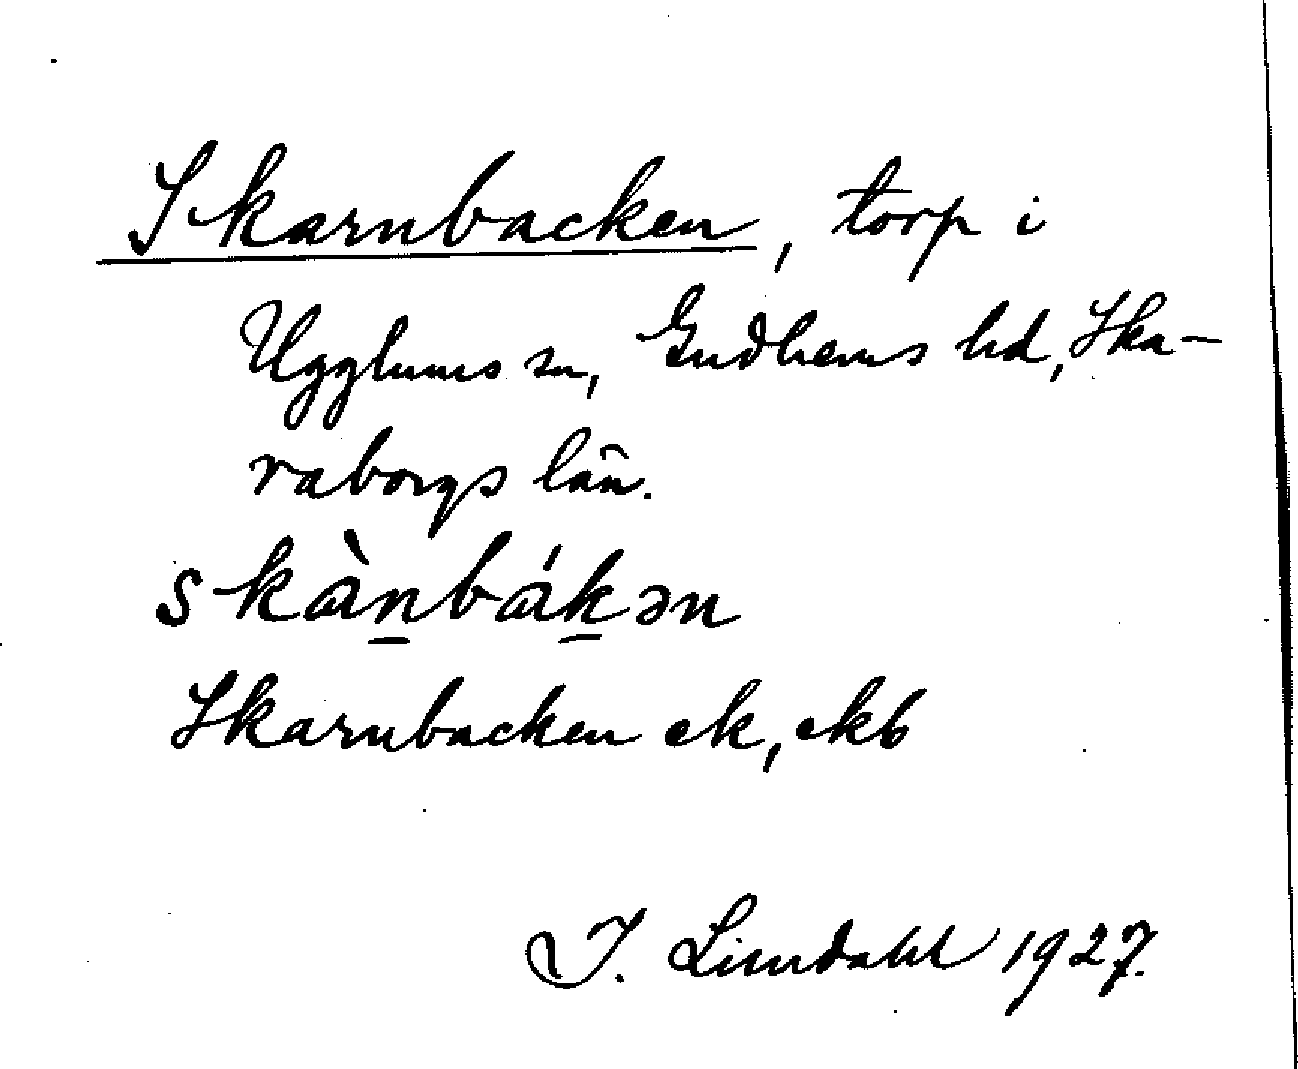 Skarnbacken, torp i
Ugglums sn, Gudhems hd, Ska-
raborgs län.
skàn̲bák̲ən
Skarnbacken ek, ekb
J. Lindahl 1927.